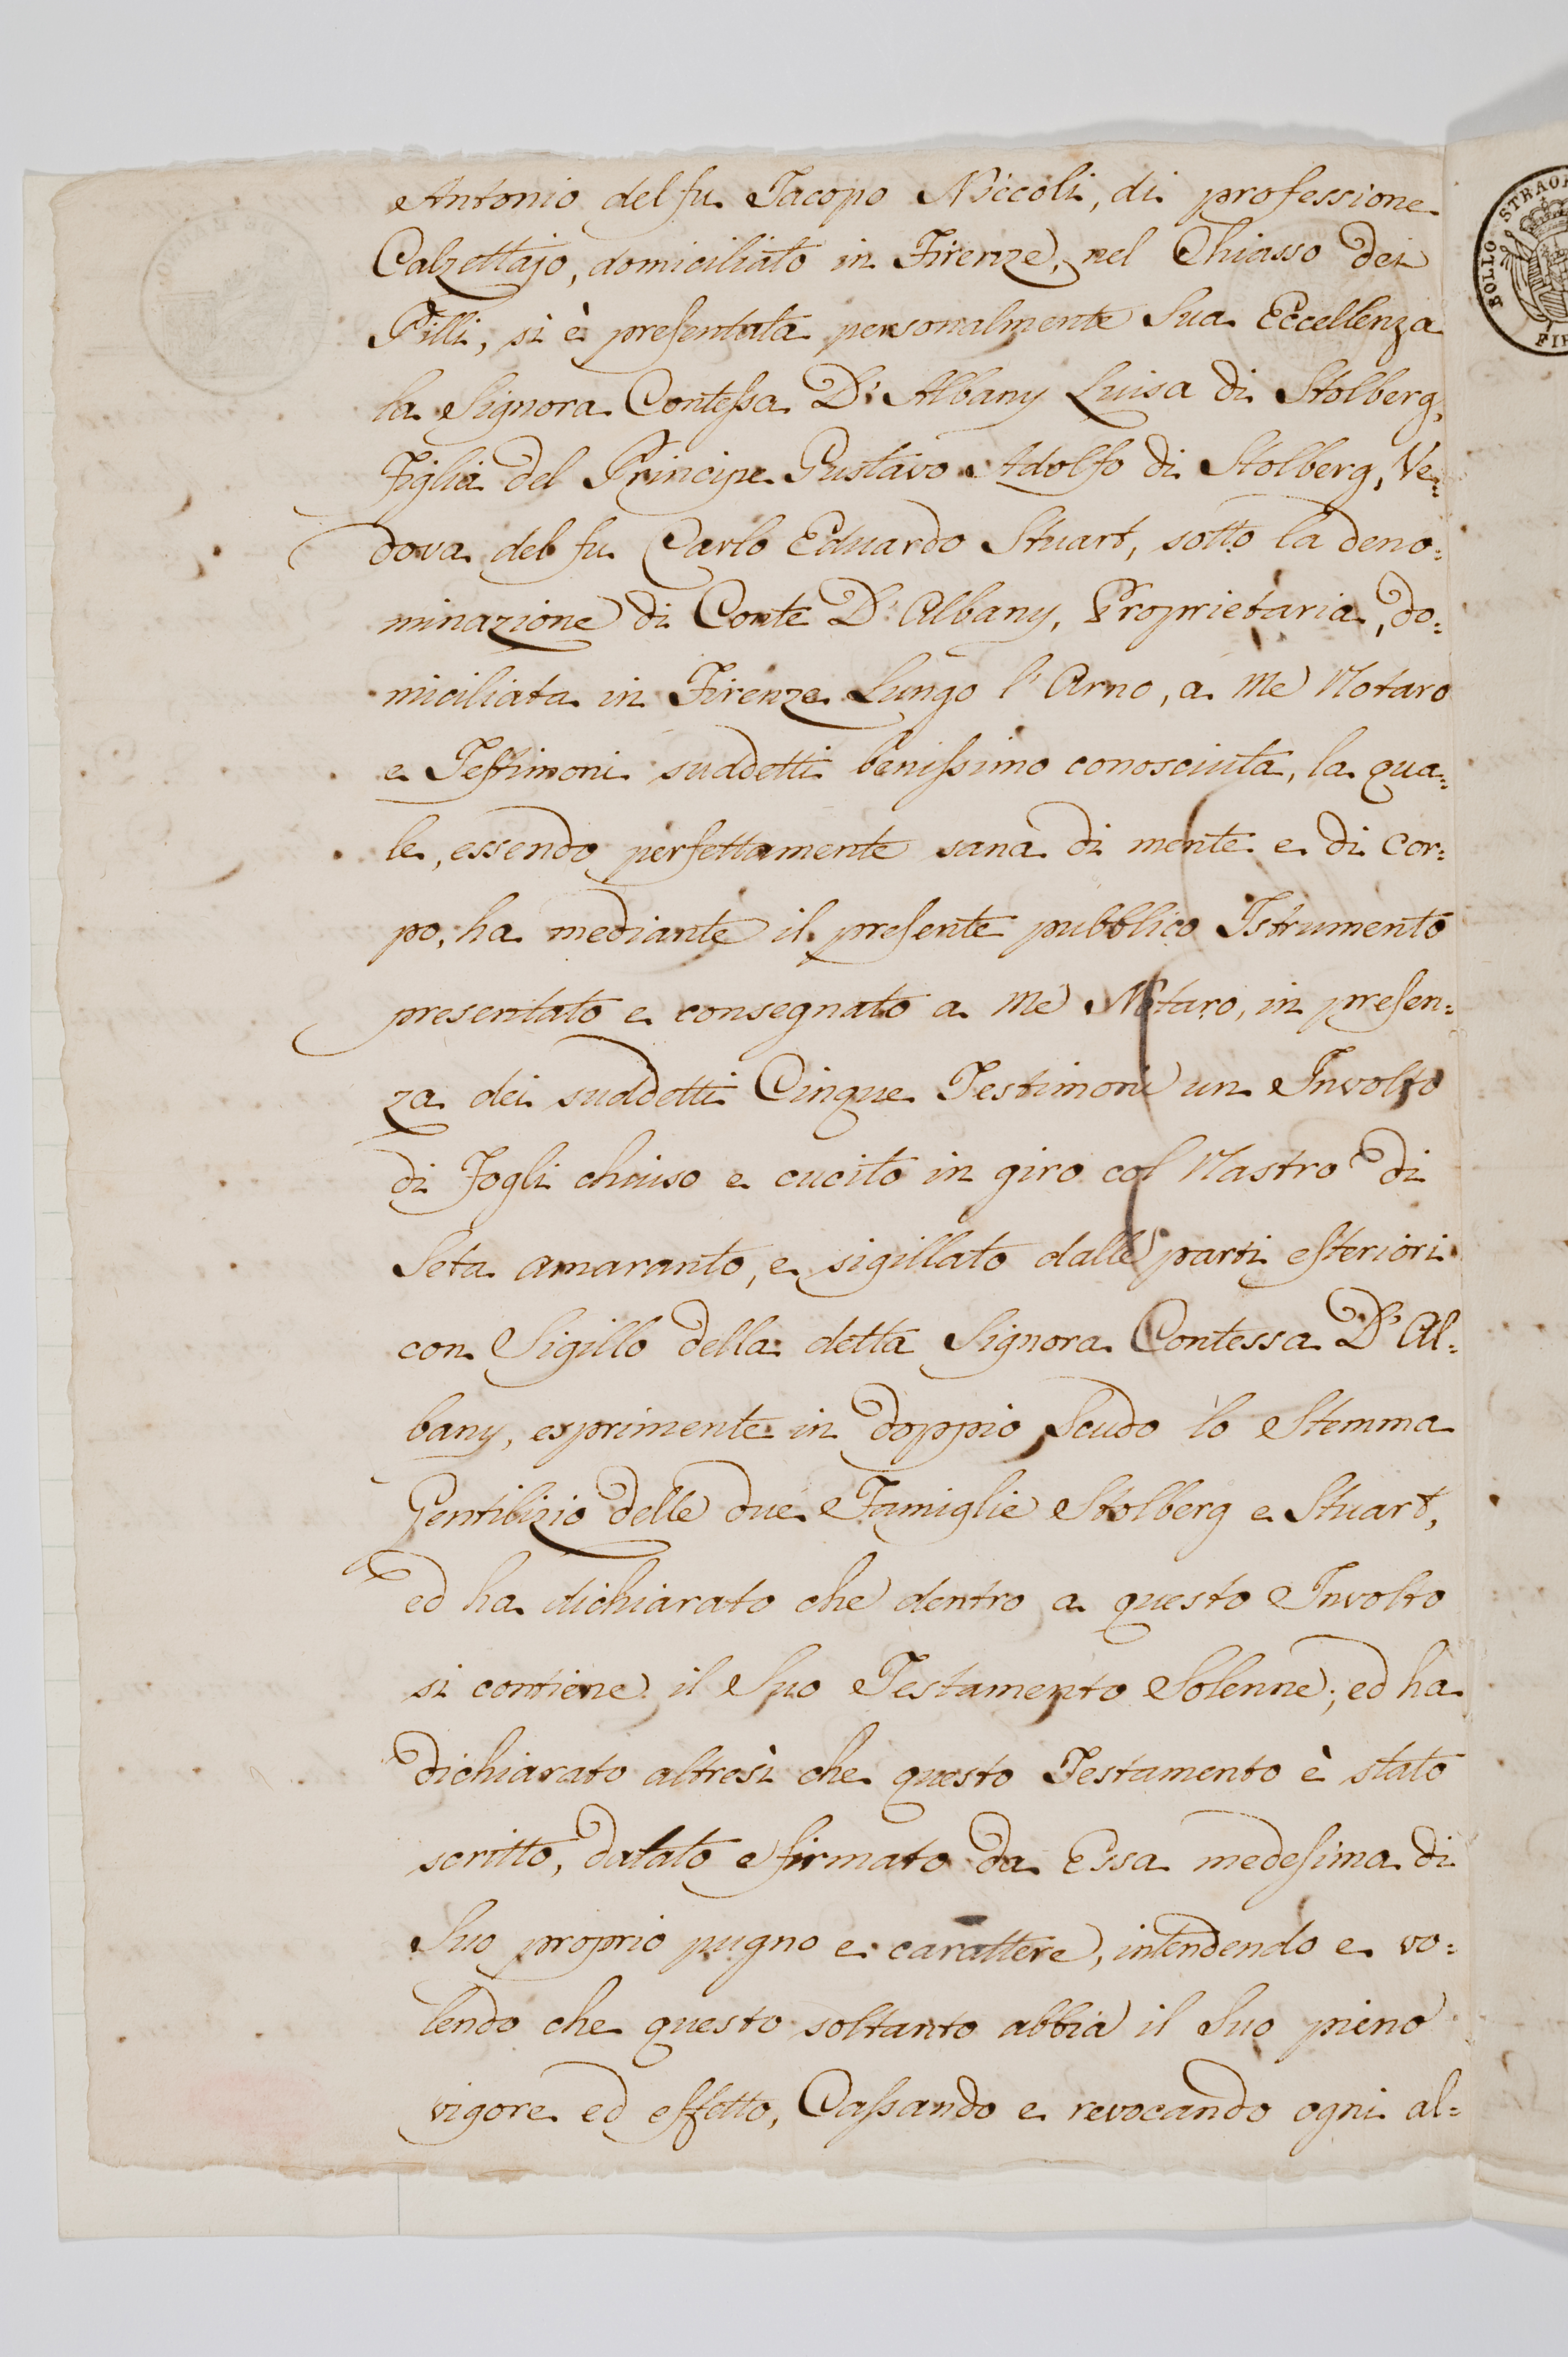 Antonio del fu Jacopo Niccoli, di professione
Calzettajo, domiciliato in Firenze, nel Chiasso dei
Pilli, si è presentata personalmente Sua Eccellenza
la Signora Contessa D'Albany Luisa di Stolberg,
Figlia del Principe Gustavo Adolfo di Stolberg, Ve=
dova del fu Carlo Eduardo Stuart, sotto la deno=
minazione di Conte D'Albany, Proprietaria, do=
miciliata in Firenze Lungo l'Arno, a Me Notaro
e Testimoni suddetti benissimo conosciuta, la qua=
le, essendo perfettamente sana di mente e di cor=
po, ha mediante il presente pubblico Istrumento
presentato e consegnato a Me Notaro, in presen=
za dei suddetti Cinque Testimoni un Involto
di Fogli chiuso e cucito in giro col Nastro di
Seta amaranto, e sigillato dalle parti esteriori
con Sigillo della detta Signora Contessa D'Al=
bany, esprimente in doppio Scudo lo Stemma
Gentilizio delle due Famiglie Stolberg e Stuart,
ed ha dichiarato che dentro a questo Involto
si contiene il Suo Testamento Solenne; ed ha
dichiarato altresì che questo Testamento è stato
scritto, datato e firmato da Essa medesima di
Suo proprio pugno e carattere, intendendo e vo=
lendo che questo soltanto abbia il Suo pieno
vigore ed effetto, Cassando e revocando ogni al=
BOLLO STRAOR
FIR